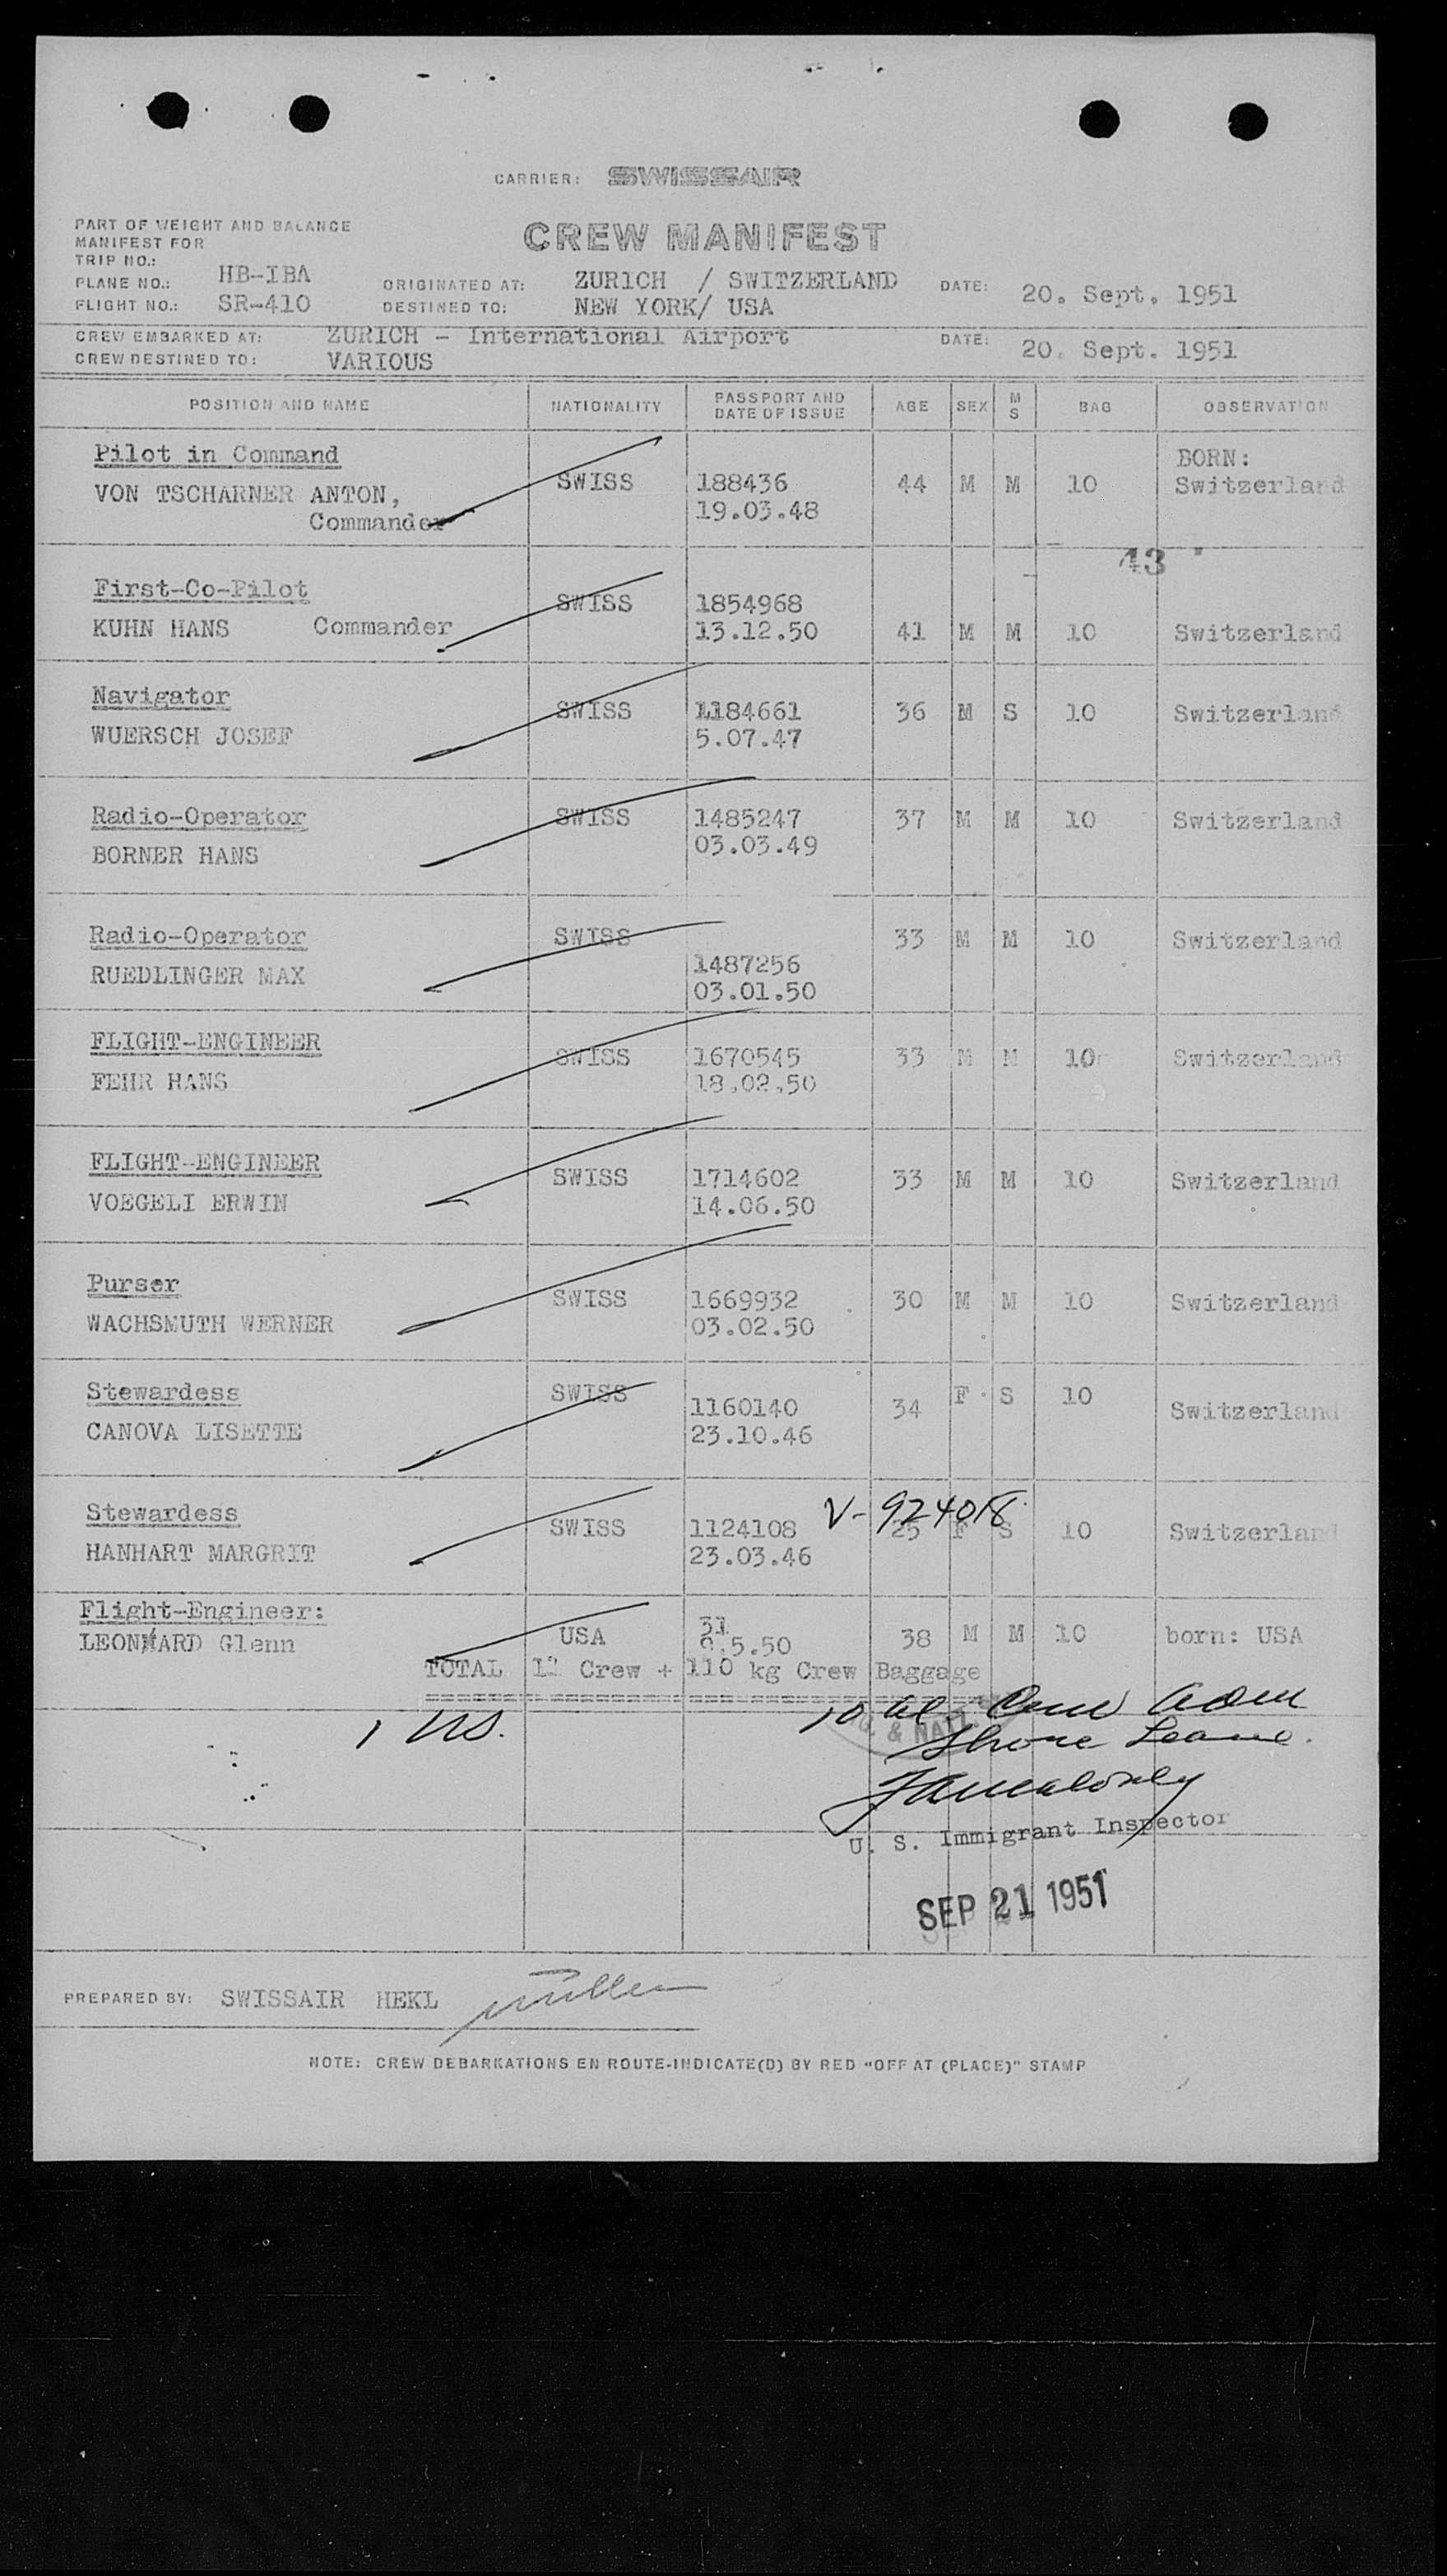 CARRIER: SWISSAIR
CREW MANIFEST
PART OF WEIGHT AND BALANCE
MANIFEST FOR
TRIP NO.:
PLANE NO.: HB-IBA
FLIGHT NO.: SR-410
ORIGINATED AT: ZURICH / SWITZERLAND
DESTINED TO: NEW YORK/ USA
DATE: 20. Sept. 1951
CREW EMBARKED AT: ZURICH - International Airport
CREW DESTINED TO: VARIOUS
DATE: 20. Sept. 1951
POSITION AND NAME NATIONALITY PASSPORT AND DATE OF ISSUE AGE SEX M S BAG OBSERVATION
Pilot in Command BORN:
VON TSCHARNER ANTON, SWISS 188436 44 M M 10 Switzerland
Commander 19.03.48
43
First-Co-Pilot SWISS 1854968
KUHN HANS Commander 13.12.50 41 M M 10 Switzerland
Navigator SWISS 1184661 36 M S 10 Switzerland
WUERSCH JOSEF 5.07.47
Radio-Operator SWISS 1485247 37 M M 10 Switzerland
BORNER HANS 03.03.49
Radio-Operator SWISS 33 M M 10 Switzerland
RUEDLINGER MAX 1487256
03.01.50
FLIGHT-ENGINEER SWISS 1670545 33 M M 10 Switzerland
FEHR HANS 18.02.50
FLIGHT-ENGINEER SWISS 1714602 33 M M 10 Switzerland
VOEGELI ERWIN 14.06.50
Purser SWISS 1669932 30 M M 10 Switzerland
WACHSMUTH WERNER 03.02.50
Stewardess SWISS 1160140 34 F S 10 Switzerland
CANOVA LISETTE 23.10.46
V-924018
Stewardess SWISS 1124108 25 F S 10 Switzerland
HANHART MARGRIT 23.03.46
Flight-Engineer: 31
LEONHARD Glenn USA 5.50 38 M M 10 born: USA
TOTAL Crew + 110 kg Crew Baggage
1 US. 10 al. Crew Adm
& NAT
Shore Leave.
U. S. Immigrant Inspector
SEP 21 1951
PREPARED BY: SWISSAIR HEKL Müller
NOTE: CREW DEBARKATIONS EN ROUTE-INDICATE(D) BY RED "OFF AT (PLACE)" STAMP